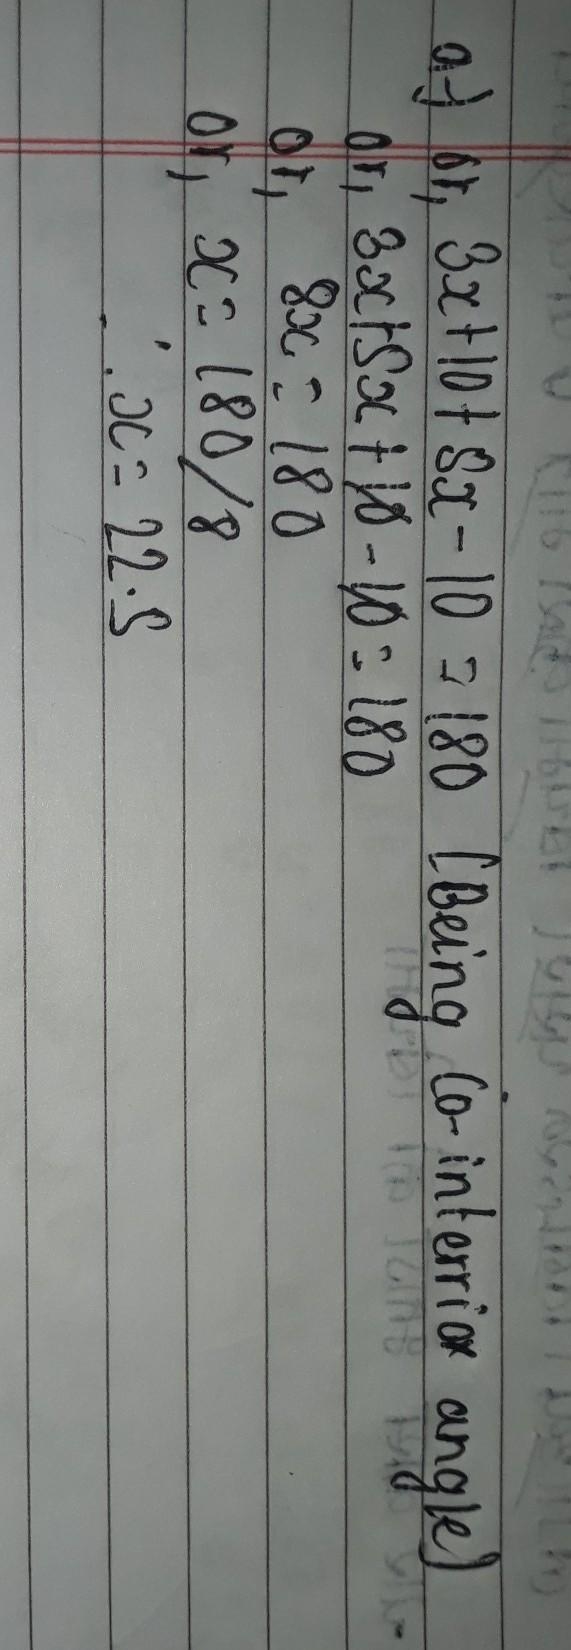 a.) or, 3x+10+5x-10 = 180 [Being Co-interrior angle]
or, 3x+5x+10-10 = 180
or, 8x = 180
or, x = 180/8
∴ x = 22.5